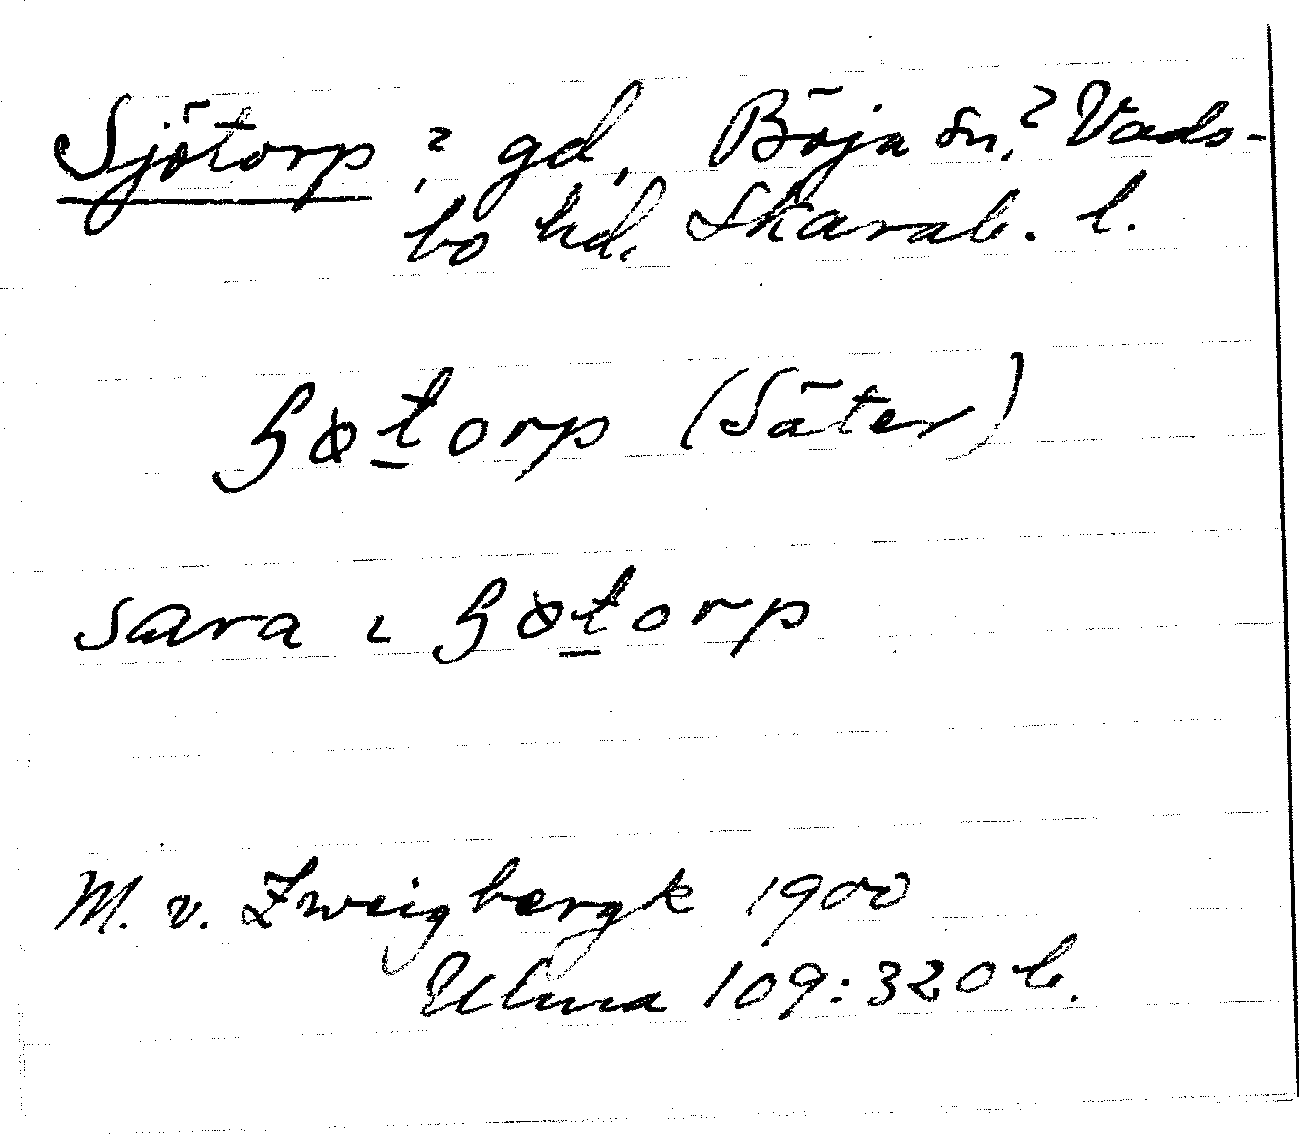 Sjötorp ?, gd, Böja sn.? Vads-
bo hd. Skarab. l.
ꞩøt̲orp (Säter)
sara ɩ ꞩøt̲orp
M. v. Zweigbergk 1900
Ulma 109:320 b.